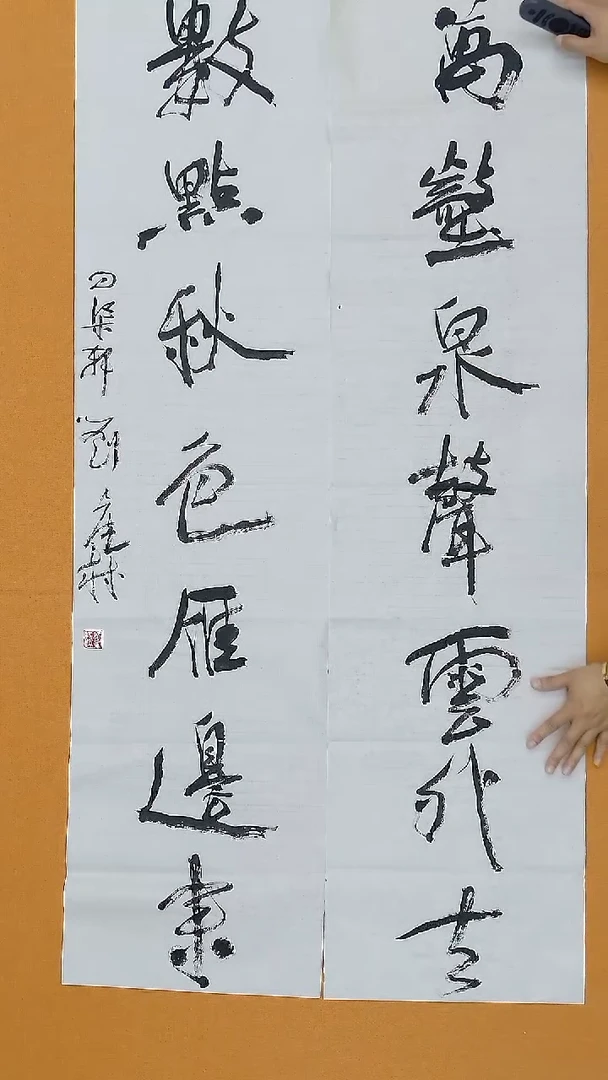 萬壑泉聲雲外去
數點秋色雁邊來
軒劉